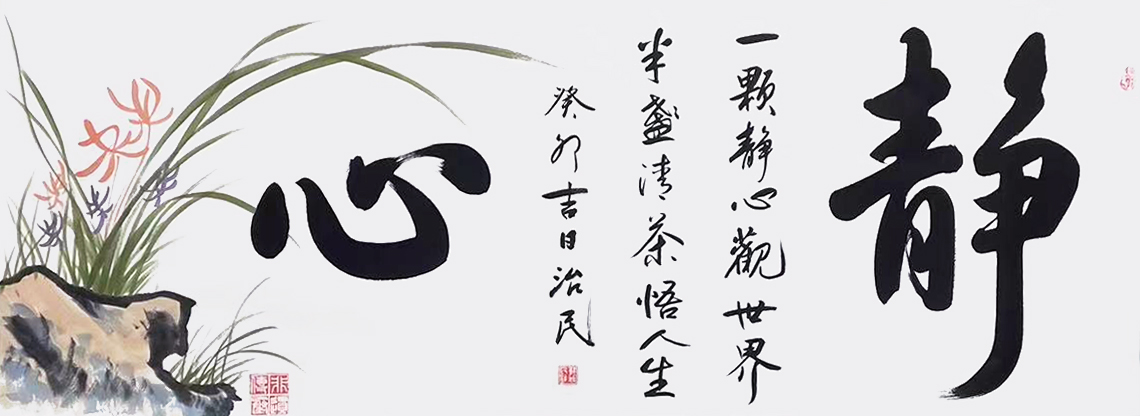 静
一颗静心觀世界
半盞清茶悟人生
癸卯吉日治民
心